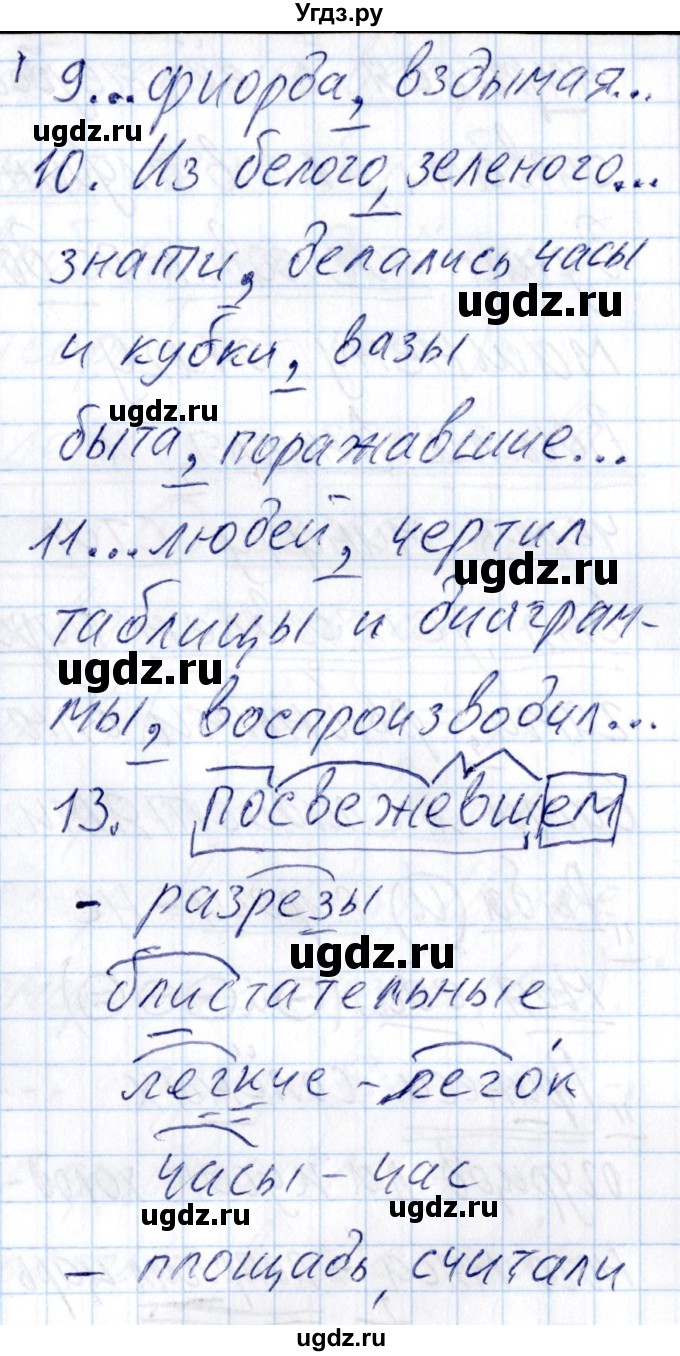 Угдз.ру
9...фиорда, вздымая...
ugdz.ru
10. Из белого, зеленого...
знати, делались часы
ugdz.ru
и кубки, вазы
ugdz.ru
быта, поражавшие...
11...людей, чертил
ugdz.ru
таблицы и диаграм-
ugdz.ru
мы, воспроизводил...
13. посвежевшем
- разрезы
ugdz.ru
блистательные
легкие - легок
часы - час
ugdz.ru ugdz.ru
- площадь, считали
ugdz.ru